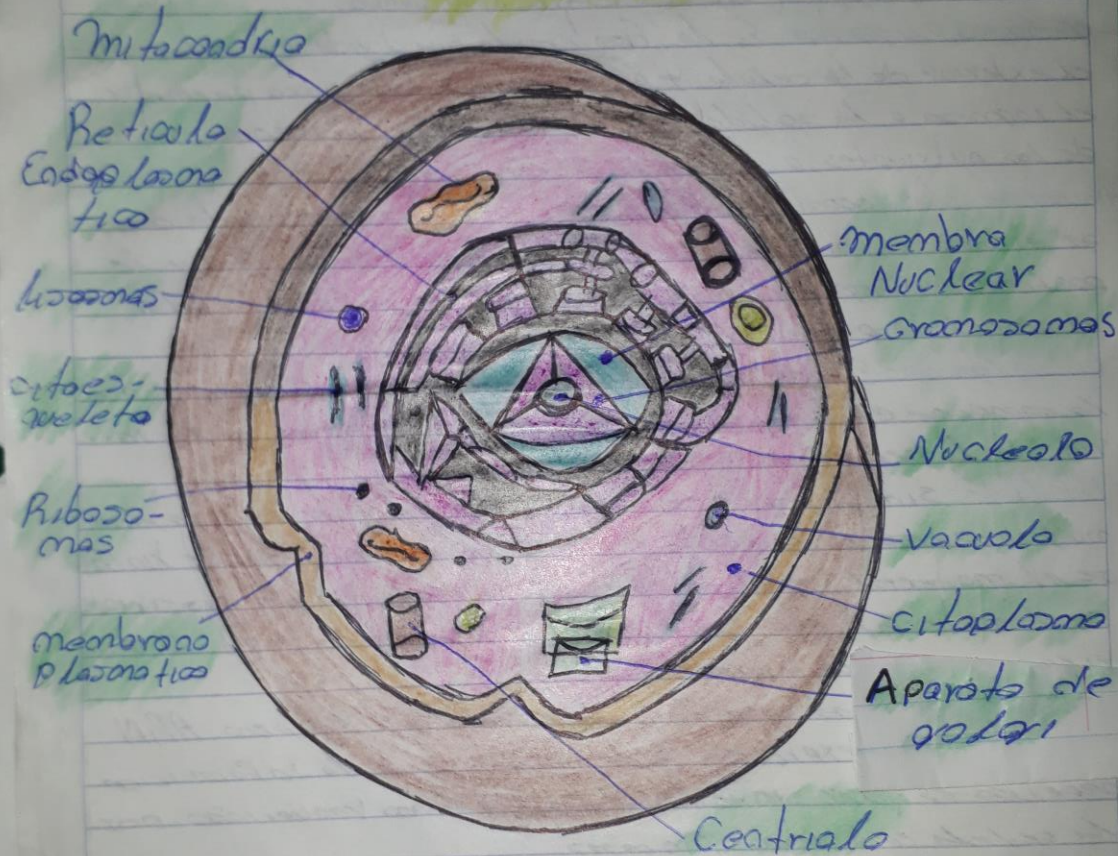 Mitocondria
Reticulo
Endoplasma
tico
lisosomas
citoes-
queleto
Riboso-
mas
membrana
Plasmatica
membra
Nuclear
Cromosomas
Nucleolo
Vacuola
citoplasma
Aparato de
golgi
Centriolo